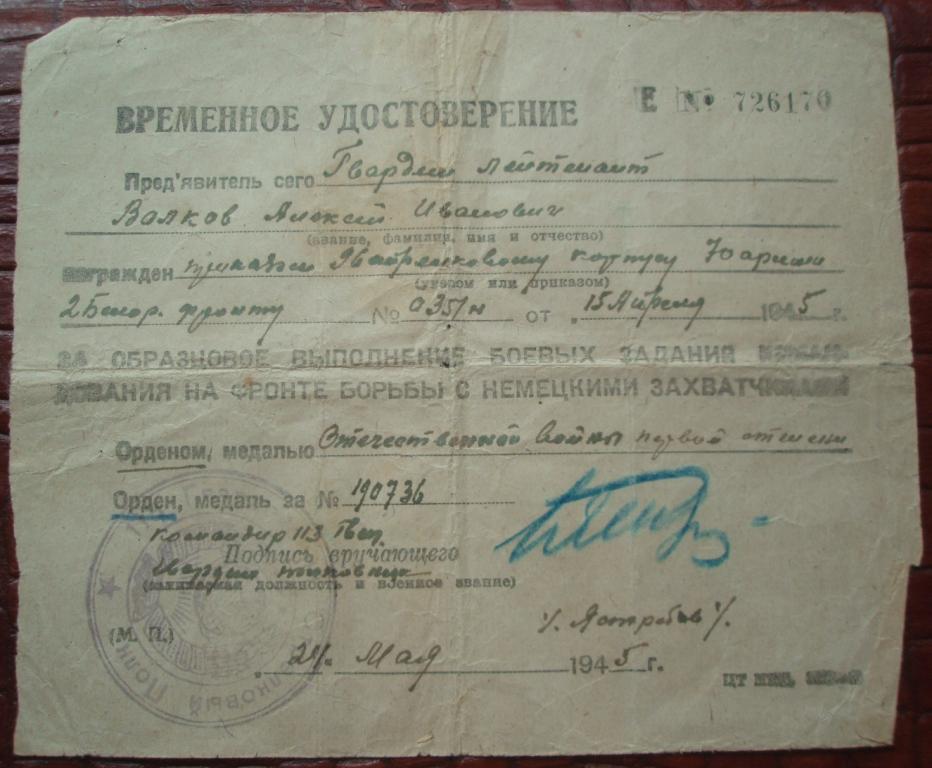 ВРЕМЕННОЕ УДОСТОВЕРЕНИЕ Е № 726170
Пред'явитель сего Гвардии лейтенант
Валков Алексей Иванович
(звание, фамилия, имя и отчество)
награжден приказом корпусу
(указом или приказом)
2 Белор. фронту № 035/н от „ 15 Апреля 1945 г.
ЗА ОБРАЗЦОВОЕ ВЫПОЛНЕНИЕ БОЕВЫХ ЗАДАНИЙ КОМАН-
ДОВАНИЯ НА ФРОНТЕ БОРЬБЫ С НЕМЕЦКИМИ ЗАХВАТЧИКАМИ
Орденом, медалью Отечественной войны первой степени
Орден, медаль за № 190736
Командир 113
Подпись вручающего
Гвардии
должность и военное звание)
/. Ястребов /.
(М. П.)
„ 24 . Мая 1945 г.
ЦТ